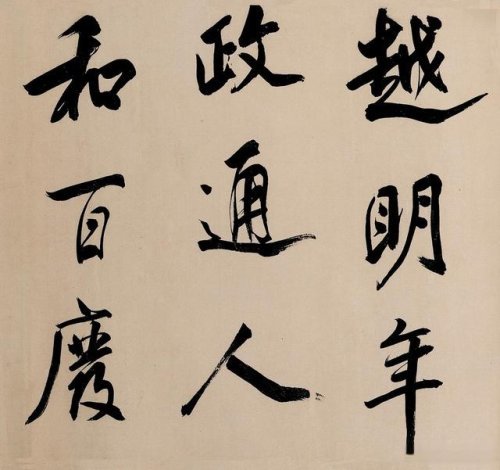 越明年
政通人
和百廢